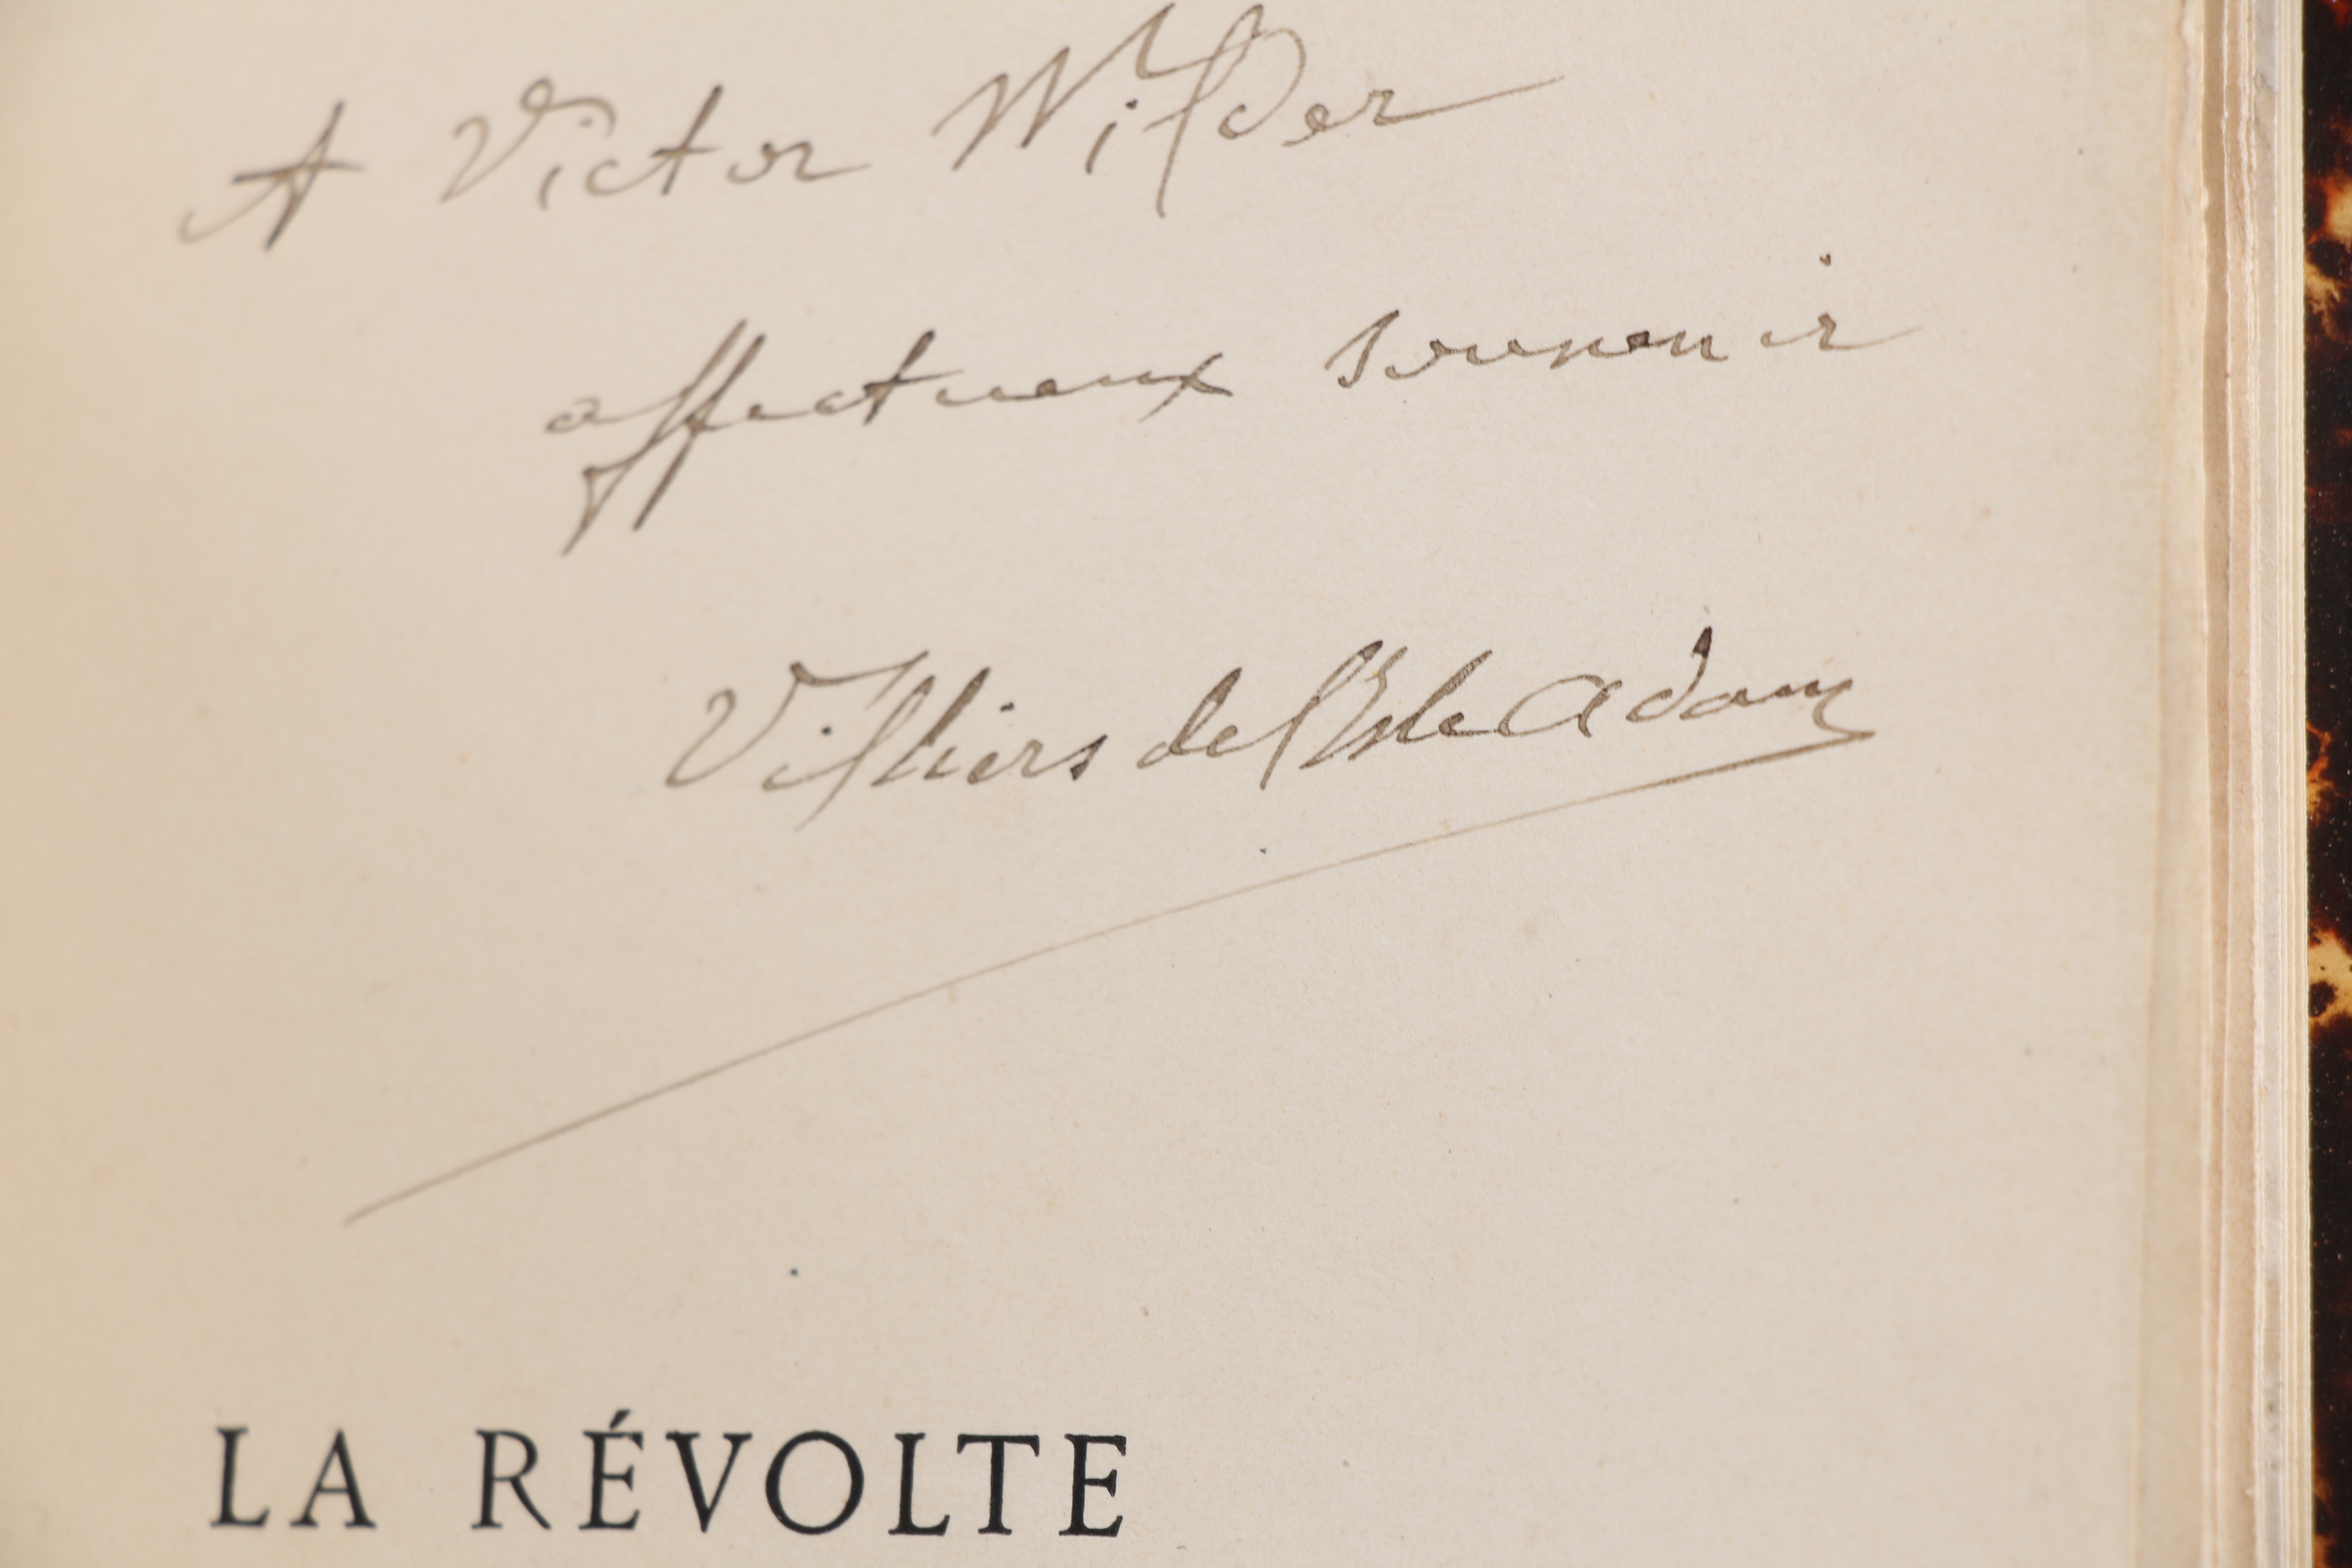 A Victor Wilder
affectueux souvenir
Villiers de l'Isle Adam
LA RÉVOLTE